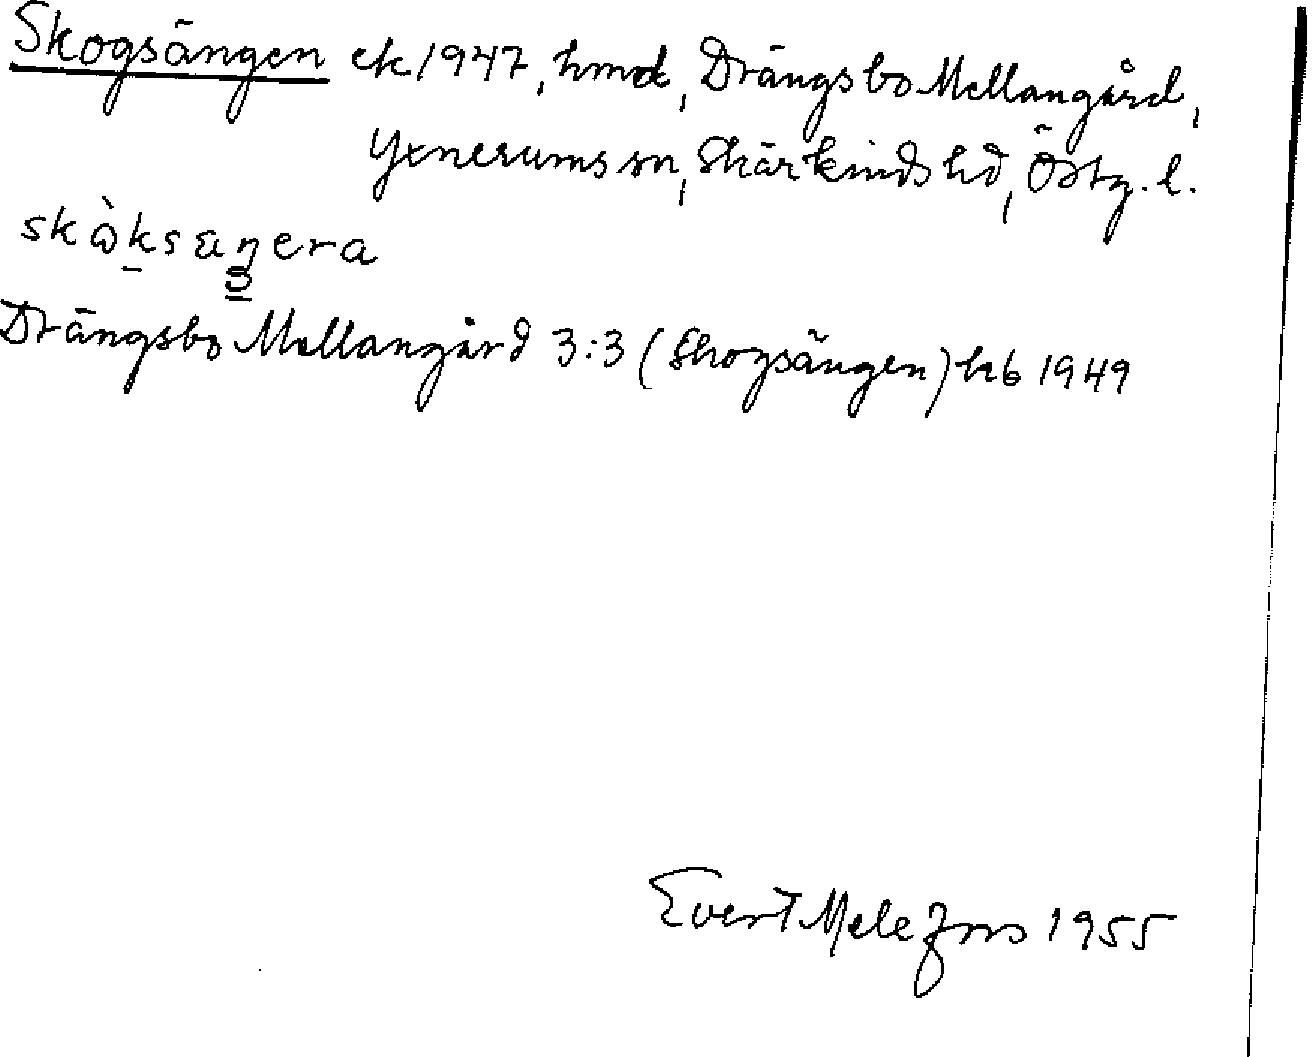 Skogsängen ek 1947, hmd, Drängsbo Mellangård,
Yxnerums sn, Skärkinds hd, Östg. l.
Drängsbo Mellangård 3:3 (Skogsängen) krb 1949
Evert Melefors 1955